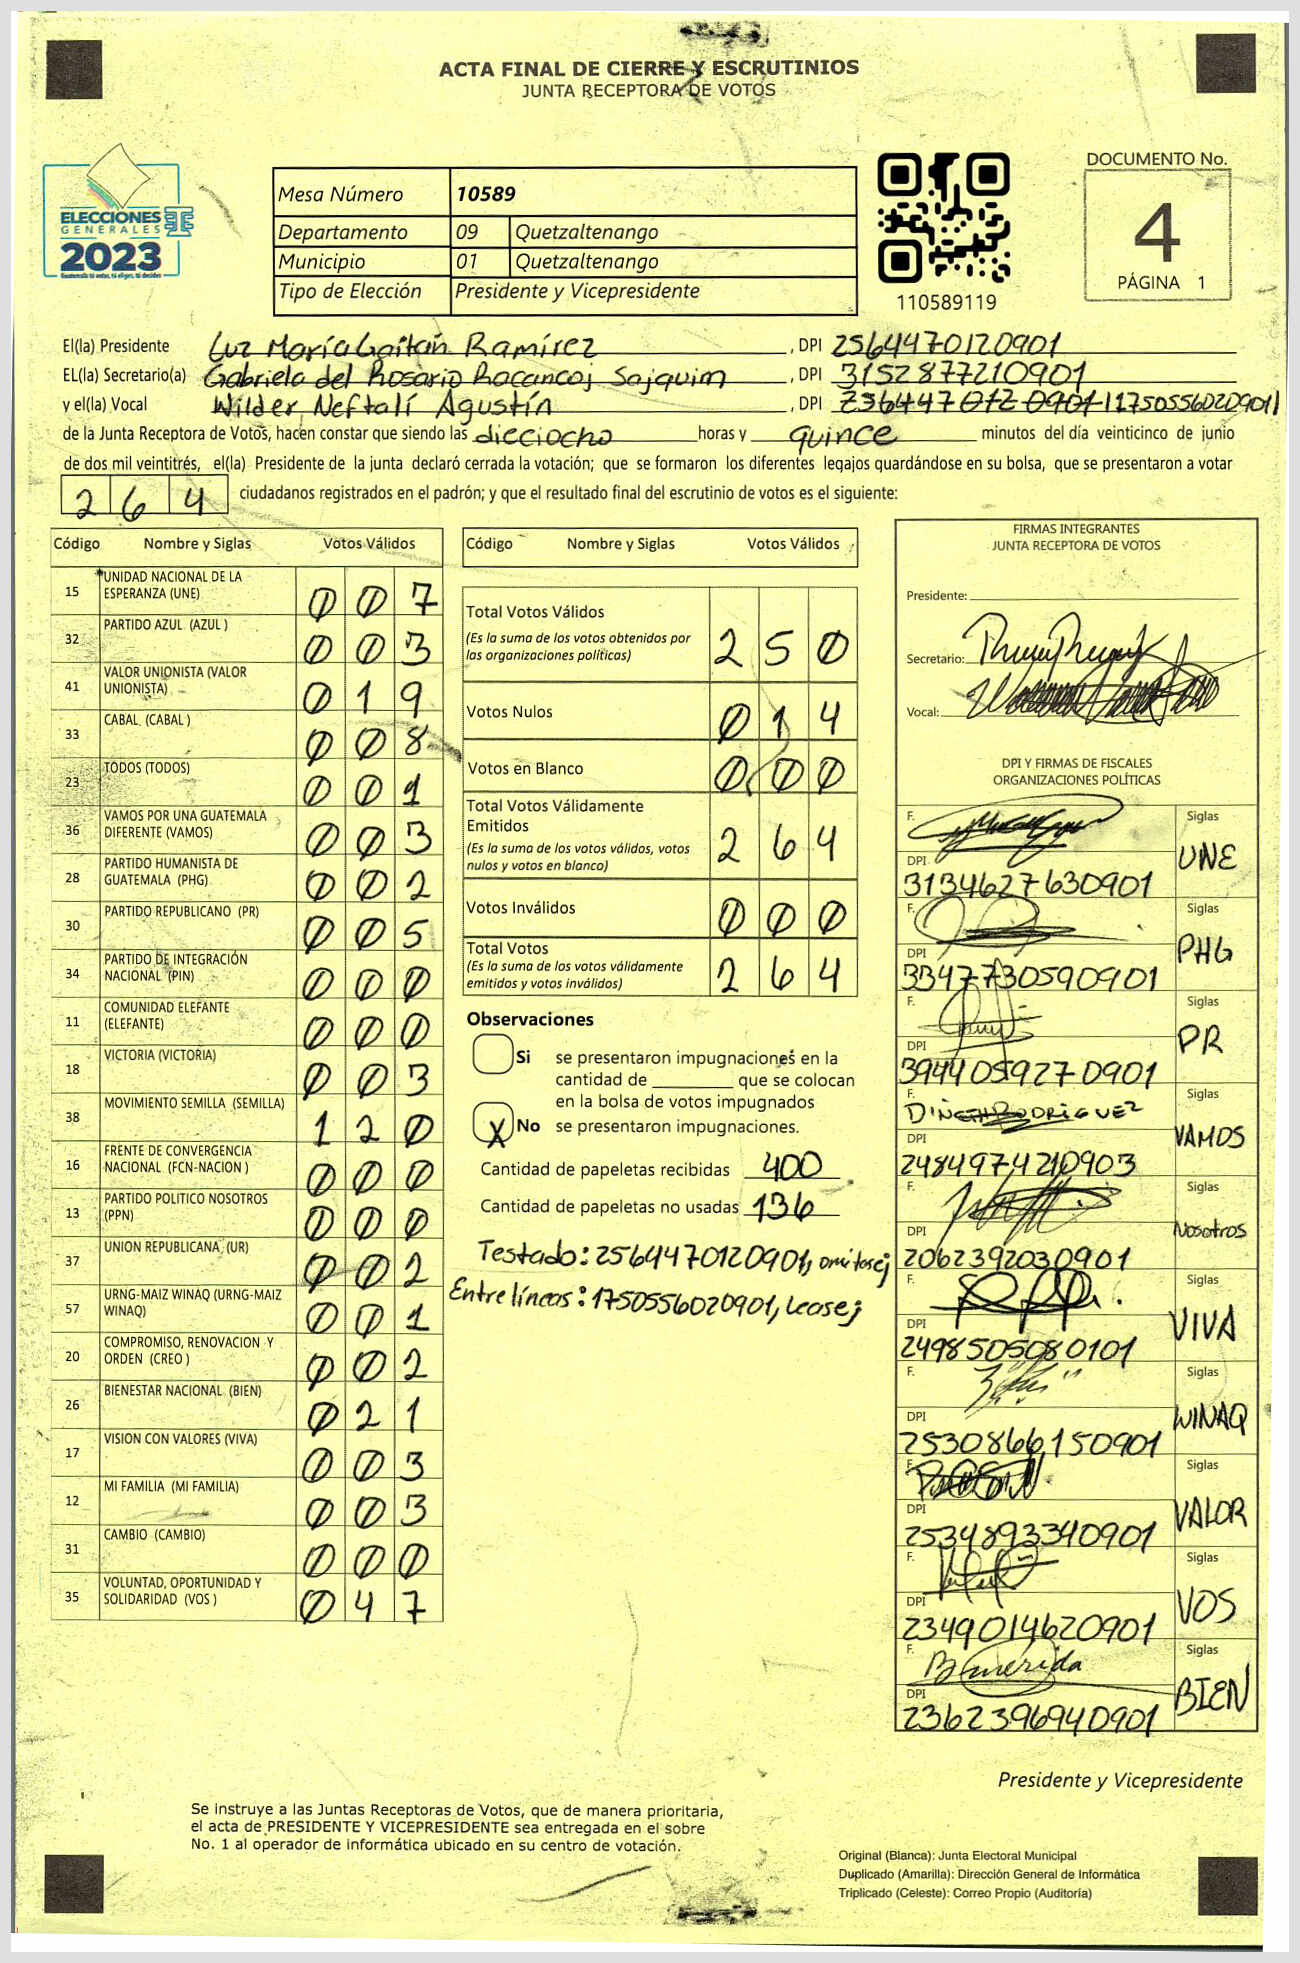 ACTA FINAL DE CIERRE Y ESCRUTINIOS
JUNTA RECEPTORA DE VOTOS
ELECCIONES
GENERALES
2023
Mesa Número 10589
Departamento 09 Quetzaltenango
Municipio 01 Quetzaltenango
Tipo de Elección Presidente y Vicepresidente
110589119
DOCUMENTO No.
4
PÁGINA 1
El(la) Presidente Luz María Gaitán Ramírez , DPI 2564470120901
EL(la) Secretario(a) Gabriela del Rosario Racancoj Sajquim , DPI 3152877210901
y el(la) Vocal Wilder Neftalí Agustín , DPI 2564470120901 1750556020901
de la Junta Receptora de Votos, hacen constar que siendo las dieciocho horas y quince minutos del día veinticinco de junio
de dos mil veintitrés, el(la) Presidente de la junta declaró cerrada la votación; que se formaron los diferentes legajos guardándose en su bolsa, que se presentaron a votar
264 ciudadanos registrados en el padrón; y que el resultado final del escrutinio de votos es el siguiente:
Código Nombre y Siglas Votos Válidos
15 UNIDAD NACIONAL DE LA ESPERANZA (UNE) 007
32 PARTIDO AZUL (AZUL ) 003
41 VALOR UNIONISTA (VALOR UNIONISTA) 019
33 CABAL (CABAL ) 008
23 TODOS (TODOS) 001
36 VAMOS POR UNA GUATEMALA DIFERENTE (VAMOS) 003
28 PARTIDO HUMANISTA DE GUATEMALA (PHG) 002
30 PARTIDO REPUBLICANO (PR) 005
34 PARTIDO DE INTEGRACIÓN NACIONAL (PIN) 000
11 COMUNIDAD ELEFANTE (ELEFANTE) 000
18 VICTORIA (VICTORIA) 003
38 MOVIMIENTO SEMILLA (SEMILLA) 120
16 FRENTE DE CONVERGENCIA NACIONAL (FCN-NACION ) 000
13 PARTIDO POLITICO NOSOTROS (PPN) 000
37 UNION REPUBLICANA (UR) 002
57 URNG-MAIZ WINAQ (URNG-MAIZ WINAQ) 001
20 COMPROMISO, RENOVACION Y ORDEN (CREO ) 002
26 BIENESTAR NACIONAL (BIEN) 021
17 VISION CON VALORES (VIVA) 003
12 MI FAMILIA (MI FAMILIA) 003
31 CAMBIO (CAMBIO) 000
35 VOLUNTAD, OPORTUNIDAD Y SOLIDARIDAD (VOS ) 047
Código Nombre y Siglas Votos Válidos
Total Votos Válidos 250
(Es la suma de los votos obtenidos por
las organizaciones políticas)
Votos Nulos 014
Votos en Blanco 000
Total Votos Válidamente
Emitidos 264
(Es la suma de los votos válidos, votos
nulos y votos en blanco)
Votos Inválidos 000
Total Votos 264
(Es la suma de los votos válidamente
emitidos y votos inválidos)
Observaciones
Si se presentaron impugnaciones en la
cantidad de ________ que se colocan
en la bolsa de votos impugnados
X No se presentaron impugnaciones.
Cantidad de papeletas recibidas 400
Cantidad de papeletas no usadas 136
Testado: 2564470120901, omitase;
Entre líneas: 1750556020901, Lease;
FIRMAS INTEGRANTES
JUNTA RECEPTORA DE VOTOS
Presidente:
Secretario:
Vocal:
DPI Y FIRMAS DE FISCALES
ORGANIZACIONES POLÍTICAS
F. Siglas
DPI UNE
3134627630901
F. Siglas
DPI PHG
3347730590901
F. Siglas
DPI PR
3944059270901
F. DINA RODRIGUEZ
DPI VAMOS
2484974210903
F. Siglas
DPI Nosotros
2062392030901
F. Siglas
DPI VIVA
2498505080101
F. Siglas
DPI WINAQ
2530866150901
F. Siglas
DPI VALOR
2534893340901
F. Siglas
DPI VOS
2349014620901
F. BMerida Siglas
DPI BIEN
2362396940901
Presidente y Vicepresidente
Se instruye a las Juntas Receptoras de Votos, que de manera prioritaria,
el acta de PRESIDENTE Y VICEPRESIDENTE sea entregada en el sobre
No. 1 al operador de informática ubicado en su centro de votación.
Original (Blanca): Junta Electoral Municipal
Duplicado (Amarilla): Dirección General de Informática
Triplicado (Celeste): Correo Propio (Auditoría)